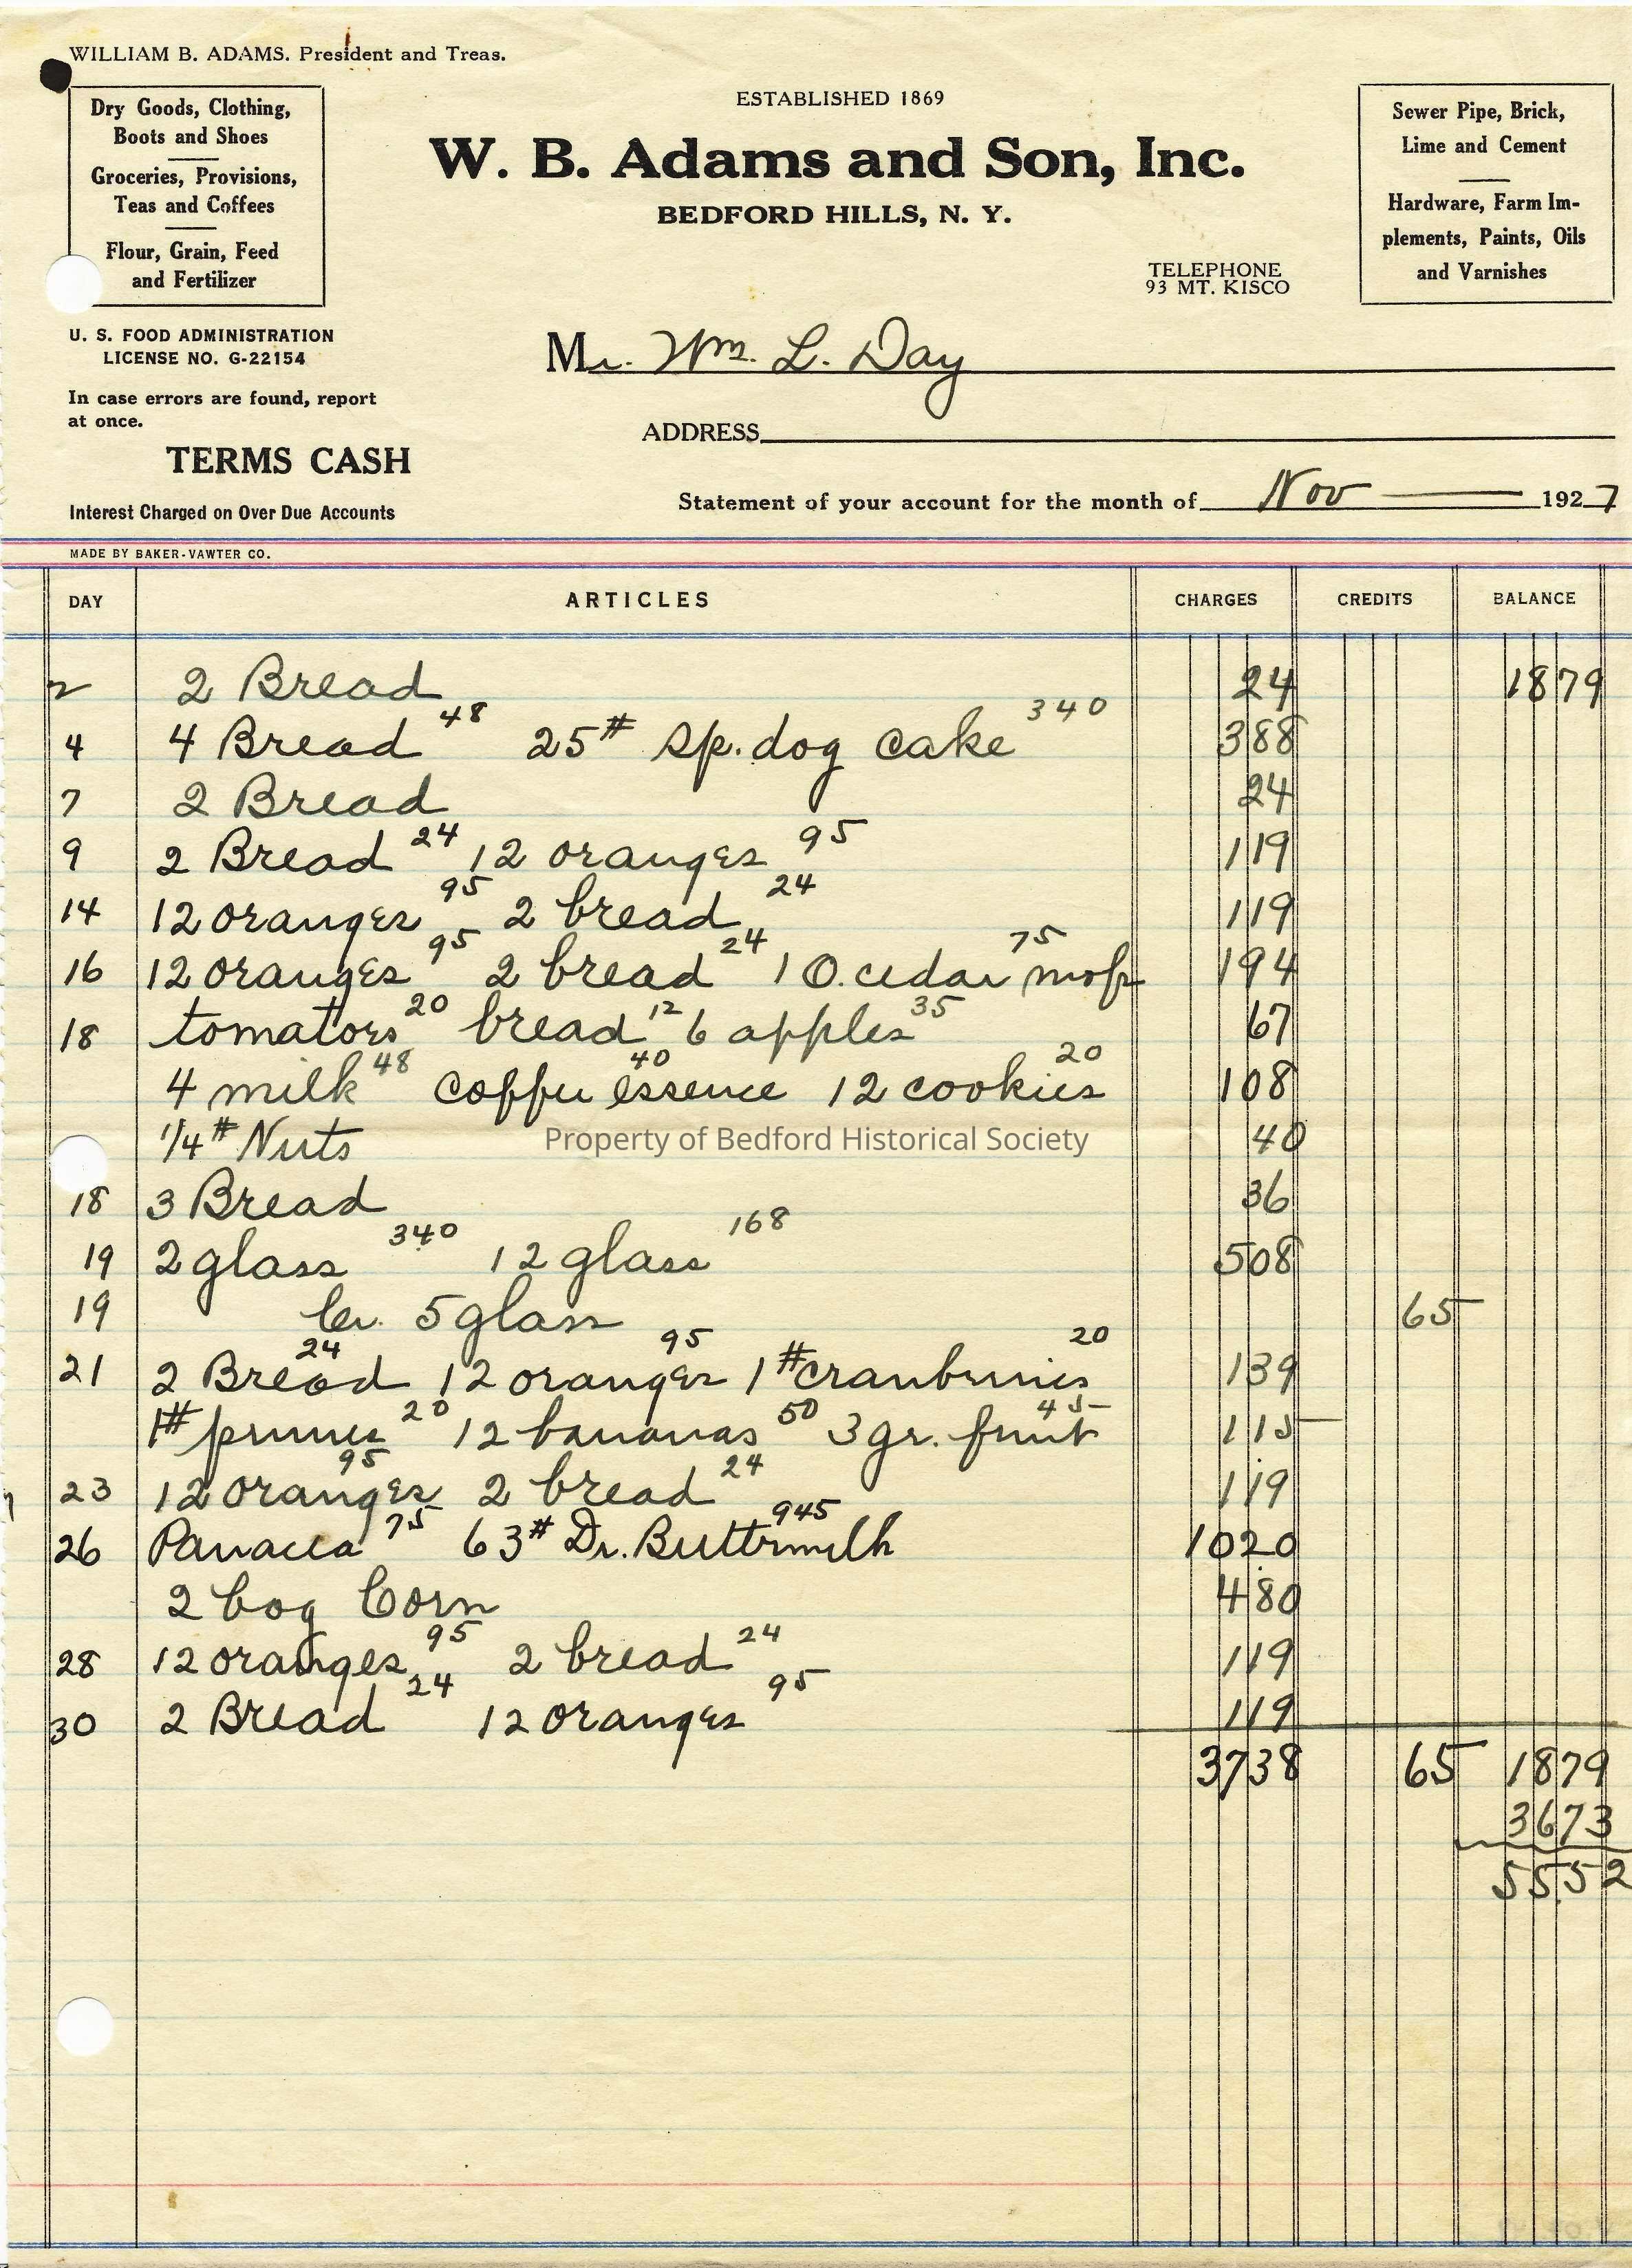 WILLIAM B. ADAMS. President and Treas.
Dry Goods, Clothing,
Boots and Shoes
Groceries, Provisions,
Teas and Coffees
Flour, Grain, Feed
and Fertilizer
ESTABLISHED 1869
W. B. Adams and Son, Inc.
BEDFORD HILLS, N. Y.
TELEPHONE
93 MT. KISCO
Sewer Pipe, Brick,
Lime and Cement
Hardware, Farm Im-
plements, Paints, Oils
and Varnishes
U. S. FOOD ADMINISTRATION
LICENSE NO. G-22154
In case errors are found, report
at once.
TERMS CASH
Interest Charged on Over Due Accounts
Mr. Wm. L. Day
ADDRESS
Statement of your account for the month of Nov 1927
MADE BY BAKER-VAWTER CO.
DAY ARTICLES CHARGES CREDITS BALANCE
2 2 Bread 24 1879
4 4 Bread 48 25# sp. dog cake 340 388
7 2 Bread 24
9 2 Bread 24 12 oranges 95 119
14 12 oranges 95 2 bread 24 119
16 12 oranges 95 2 bread 24 1 O.cedar mop 75 194
18 tomatoes 20 bread 12 6 apples 35 67
4 milk 48 coffee essence 40 12 cookies 20 108
1/4# Nuts 40
Property of Bedford Historical Society
18 3 Bread 36
19 2 glass 340 12 glass 168 508
19 Cr. 5 glass 65
21 2 Bread 24 12 oranges 95 1# cranberries 20 139
1# prunes 20 12 bananas 50 3 gr. fruit 45 115
23 12 oranges 95 2 bread 24 119
26 Panacea 75 63# Dr. Buttermilk 945 1020
2 bag Corn 480
28 12 oranges 95 2 bread 24 119
30 2 Bread 24 12 oranges 95 119
3738 65 1879
3673
5552